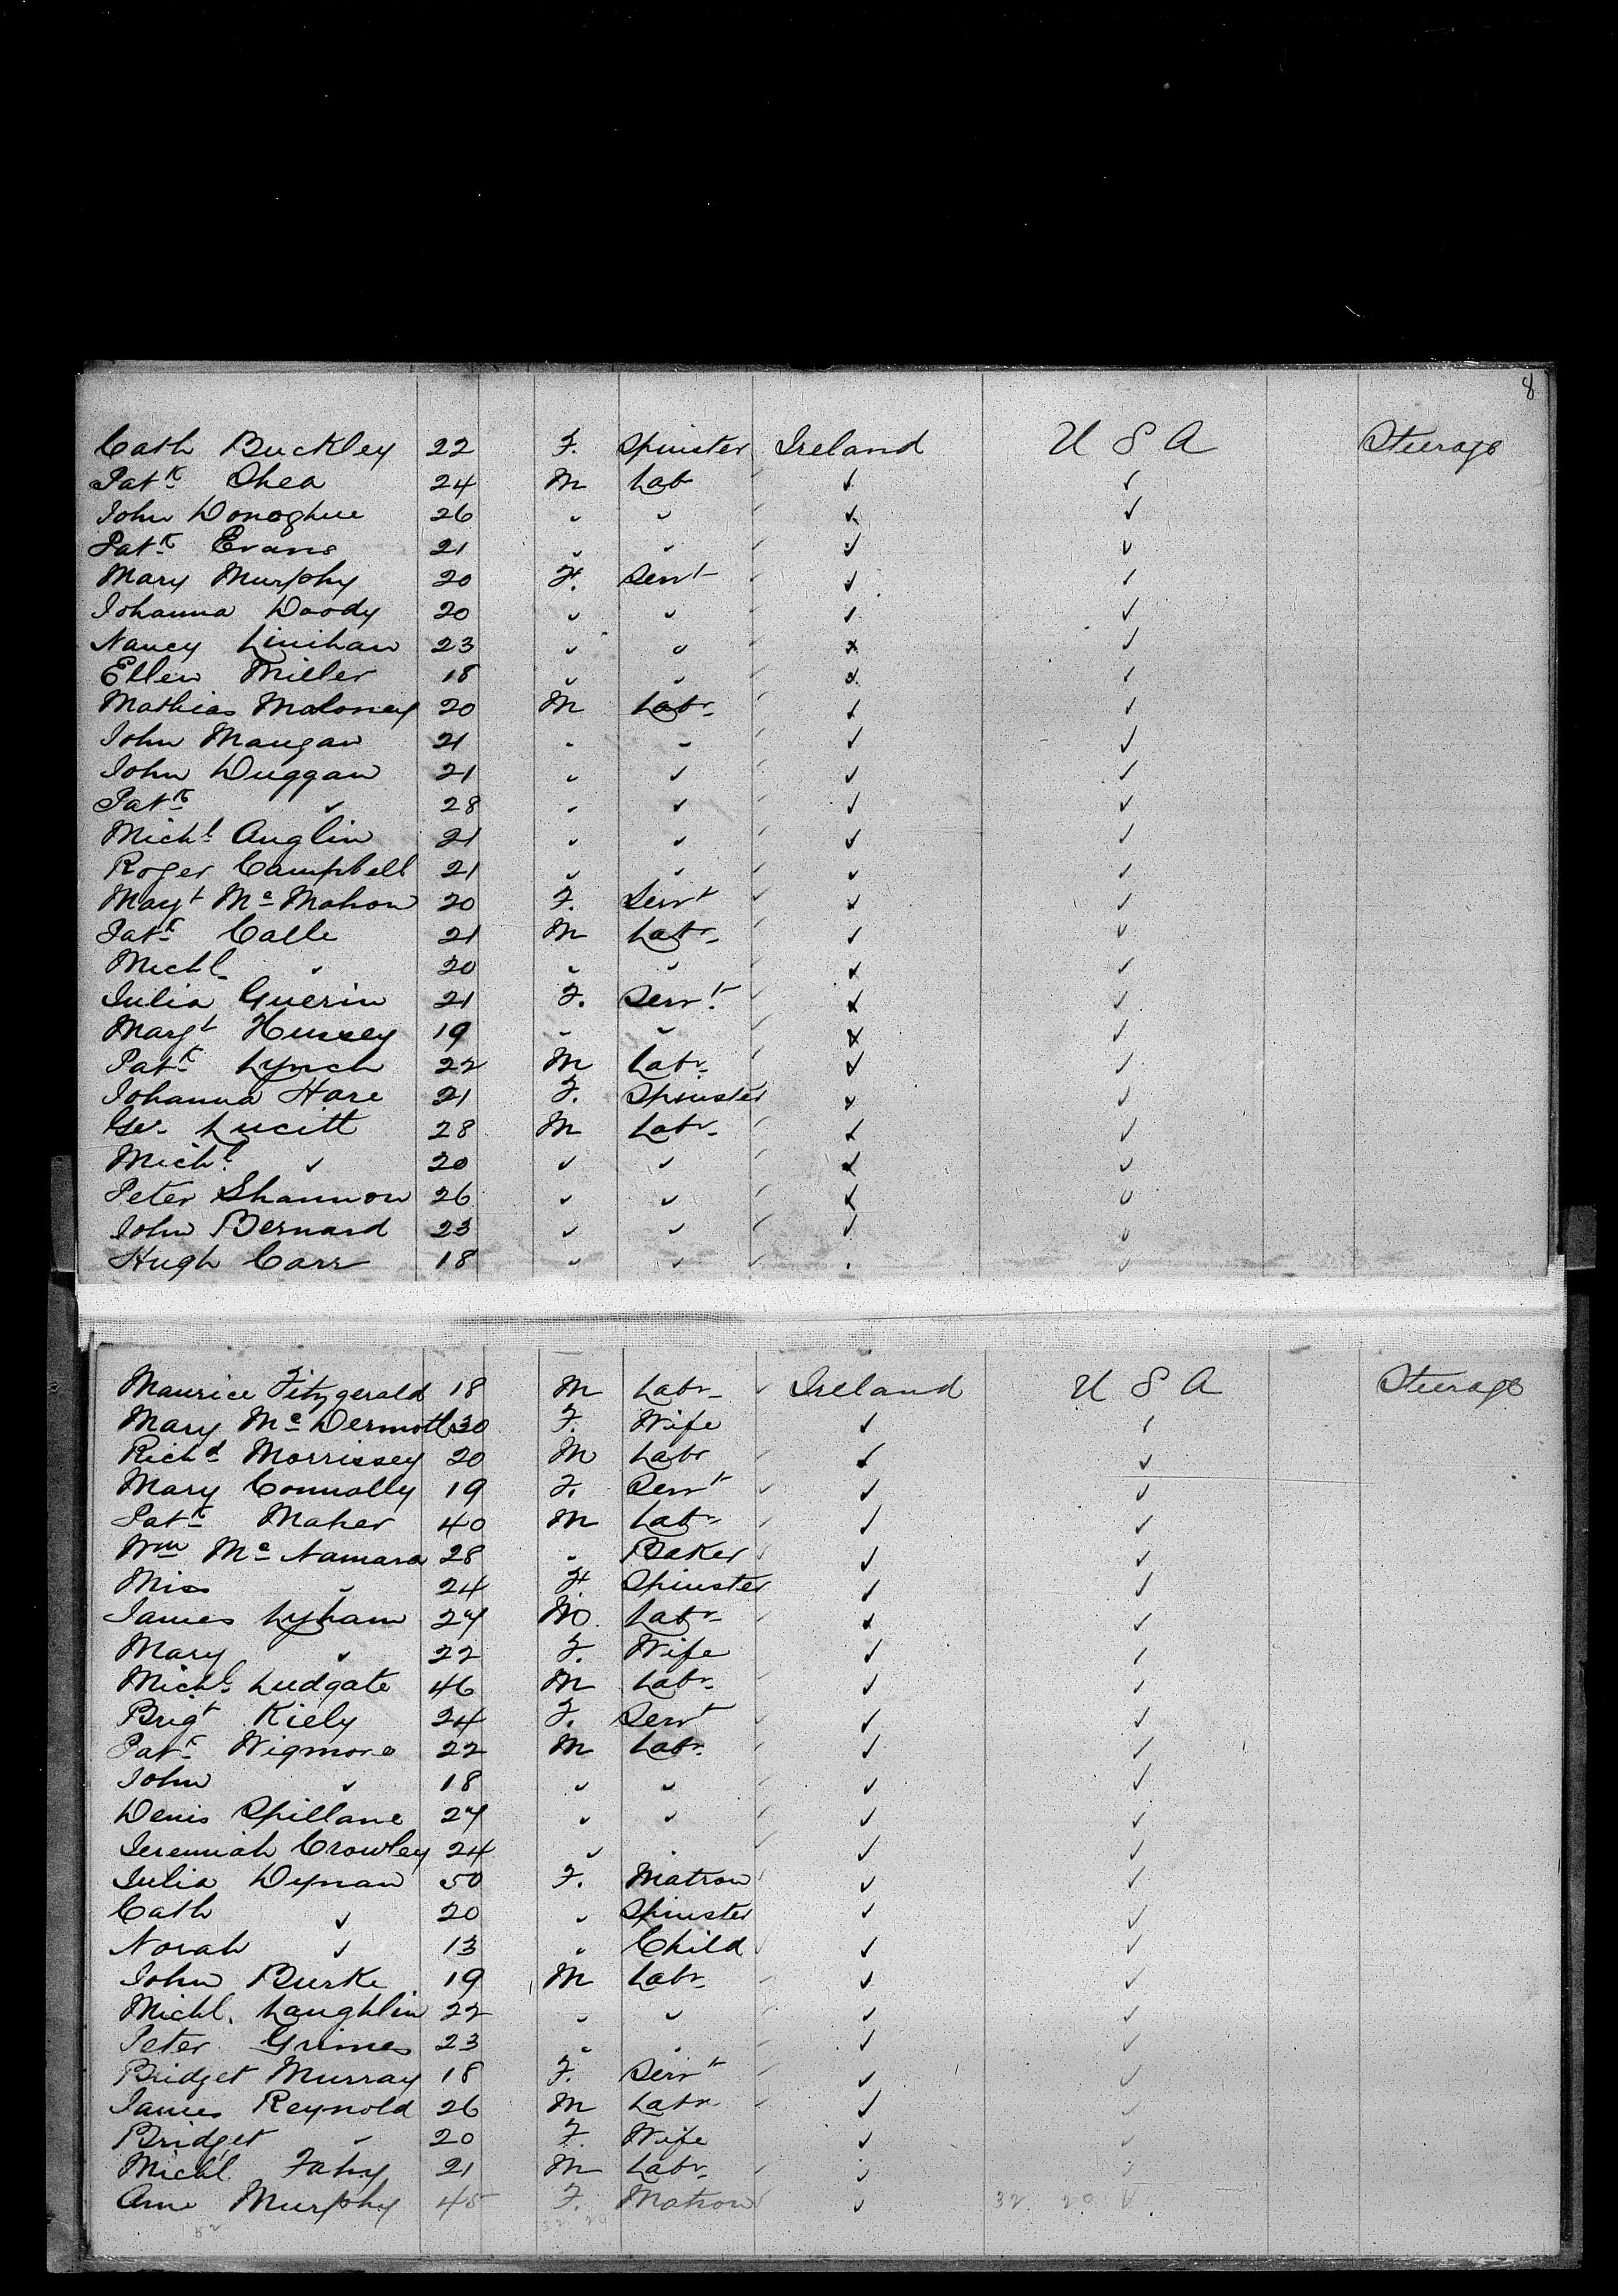 8
Cath Buckley 22 F. Spinster Ireland U S A Steerage
Patk Shea 24 M Labr ✓ ✓
John Donoghue 26 " " ✓ ✓
Patk Evans 21 " " ✓ ✓
Mary Murphy 20 F. Servt ✓ ✓
Johanna Doody 20 " " ✓ ✓
Nancy Linihan 23 " " ✓ ✓
Ellen Miller 18 " " ✓ ✓
Mathias Maloney 20 M Labr ✓ ✓
John Mangan 21 " " ✓ ✓
John Duggan 21 " " ✓ ✓
Patk " 28 " " ✓ ✓
Michl Anglin 21 " " ✓ ✓
Roger Campbell 21 " " ✓ ✓
Mayt Mc Mahon 20 F. Servt ✓ ✓
Patk Calle 21 M Labr ✓ ✓
Michl " 20 " " ✓ ✓
Julia Guerin 21 F. Servt ✓ ✓
Margt Hussey 19 " " ✓ ✓
Patk Lynch 22 M Labr ✓ ✓
Johanna Hare 21 F. Spinster ✓ ✓
Geo. Lucitt 28 M Labr ✓ ✓
Michl " 20 " " ✓ ✓
Peter Shannon 26 " " ✓ ✓
John Bernard 23 " " ✓ ✓
Hugh Carr 18 " " ✓ ✓
Maurice Fitzgerald 18 M Labr Ireland U S A Steerage
Mary Mc Dermott 30 F. Wife ✓ ✓
Richd Morrissey 20 M Labr ✓ ✓
Mary Connolly 19 F. Servt ✓ ✓
Patk Maher 40 M Labr ✓ ✓
Wm Mc Namara 28 " Baker ✓ ✓
Miss " 24 F. Spinster ✓ ✓
James Lyham 27 M Labr ✓ ✓
Mary " 22 F. Wife ✓ ✓
Michl Ludgate 46 M Labr ✓ ✓
Brigt Kiely 24 F. Servt ✓ ✓
Patk Wigmore 22 M Labr ✓ ✓
John " 18 " " ✓ ✓
Denis Spillane 27 " " ✓ ✓
Jeremiah Crowley 24 " " ✓ ✓
Julia Dynan 50 F. Matron ✓ ✓
Cath " 20 " Spinster ✓ ✓
Norah " 13 " Child ✓ ✓
John Burke 19 M Labr ✓ ✓
Michl. Laughlin 22 " " ✓ ✓
Peter Grimes 23 " " ✓ ✓
Bridget Murray 18 F. Servt ✓ ✓
James Reynold 26 M Labr ✓ ✓
Bridget " 20 F. Wife ✓ ✓
Michl Fahy 21 M Labr ✓ ✓
Ann Murphy 45 F. Matron ✓ 32 20 ✓
52 32 20